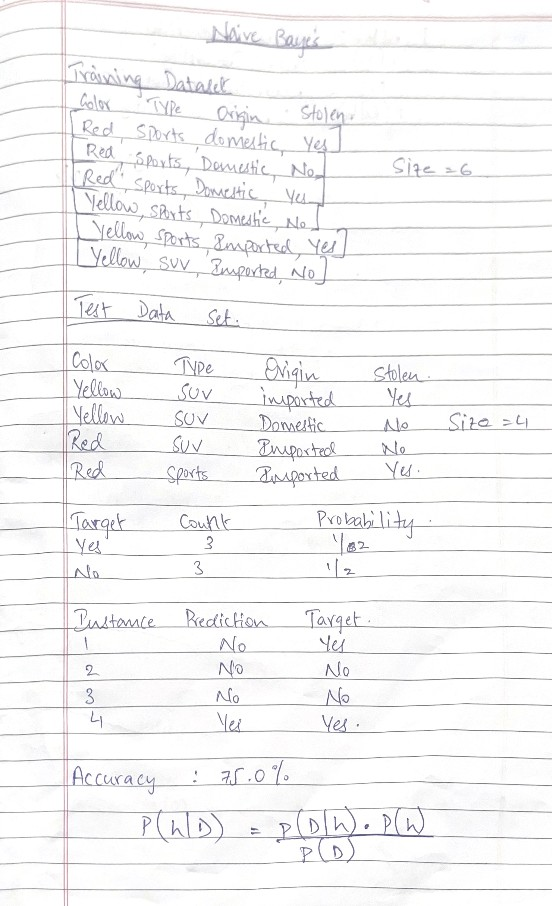 Naive Bayes
Training Dataset
Color Type Origin Stolen.
[Red, Sports, domestic, Yes]
[Red, Sports, Domestic, No]
[Red, Sports, Domestic, Yes]
[Yellow, Sports, Domestic, No]
[Yellow, Sports, Imported, Yes]
[Yellow, SUV, Imported, No]
Size = 6
Test Data Set.
Color Type Origin Stolen.
Yellow SUV imported Yes
Yellow SUV Domestic No Size = 4
Red SUV Imported No
Red Sports Imported Yes.
Target Count Probability.
Yes 3 1/2
No 3 1/2
Instance Prediction Target.
1 No Yes
2 No No
3 No No
4 Yes Yes.
Accuracy : 75.0%
P(h|D) = P(D|h) . P(h)
P(D)